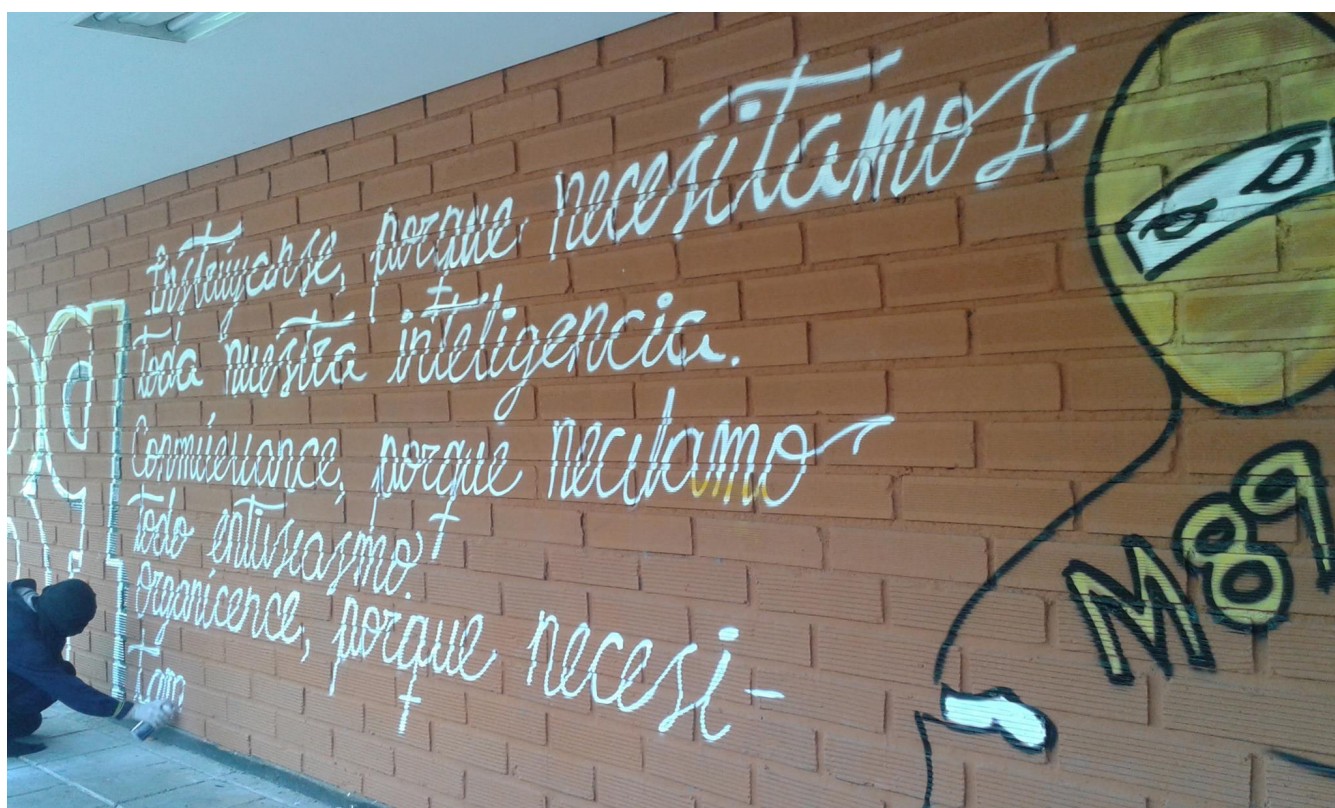 Instrúyanse, porque necesitamos
toda nuestra inteligencia.
Conmuévance, porque
todo entusiasmo.
organícence, porque necesi-
tamo
M89